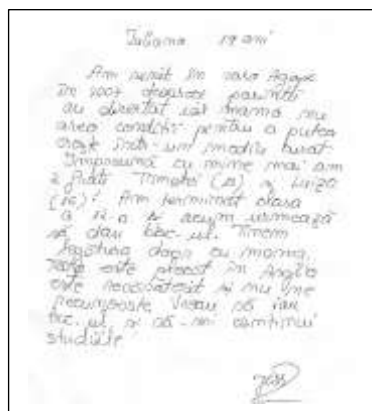 Iuliana 19 ani
Am venit în casa Agape
în 2007 deoarece părinții
au divorțat iar mama nu
avea condiții pentru a putea
crește într-un mediu curat
Împreună cu mine mai am
2 frați Timotei și Luiza
(16). Am terminat clasa
a 12 a și acum urmează
să dau bac-ul. Ținem
legătura doar cu mama,
tata este plecat în Anglia
este recăsătorit și nu ne
recunoaște. Vreau să iau
bac-ul și să-mi continui
studiile